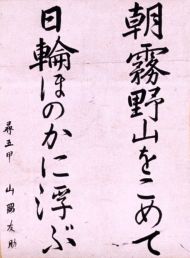 朝霧野山をこめて
日輪ほのかに浮ぶ
尋五甲 山岡友助